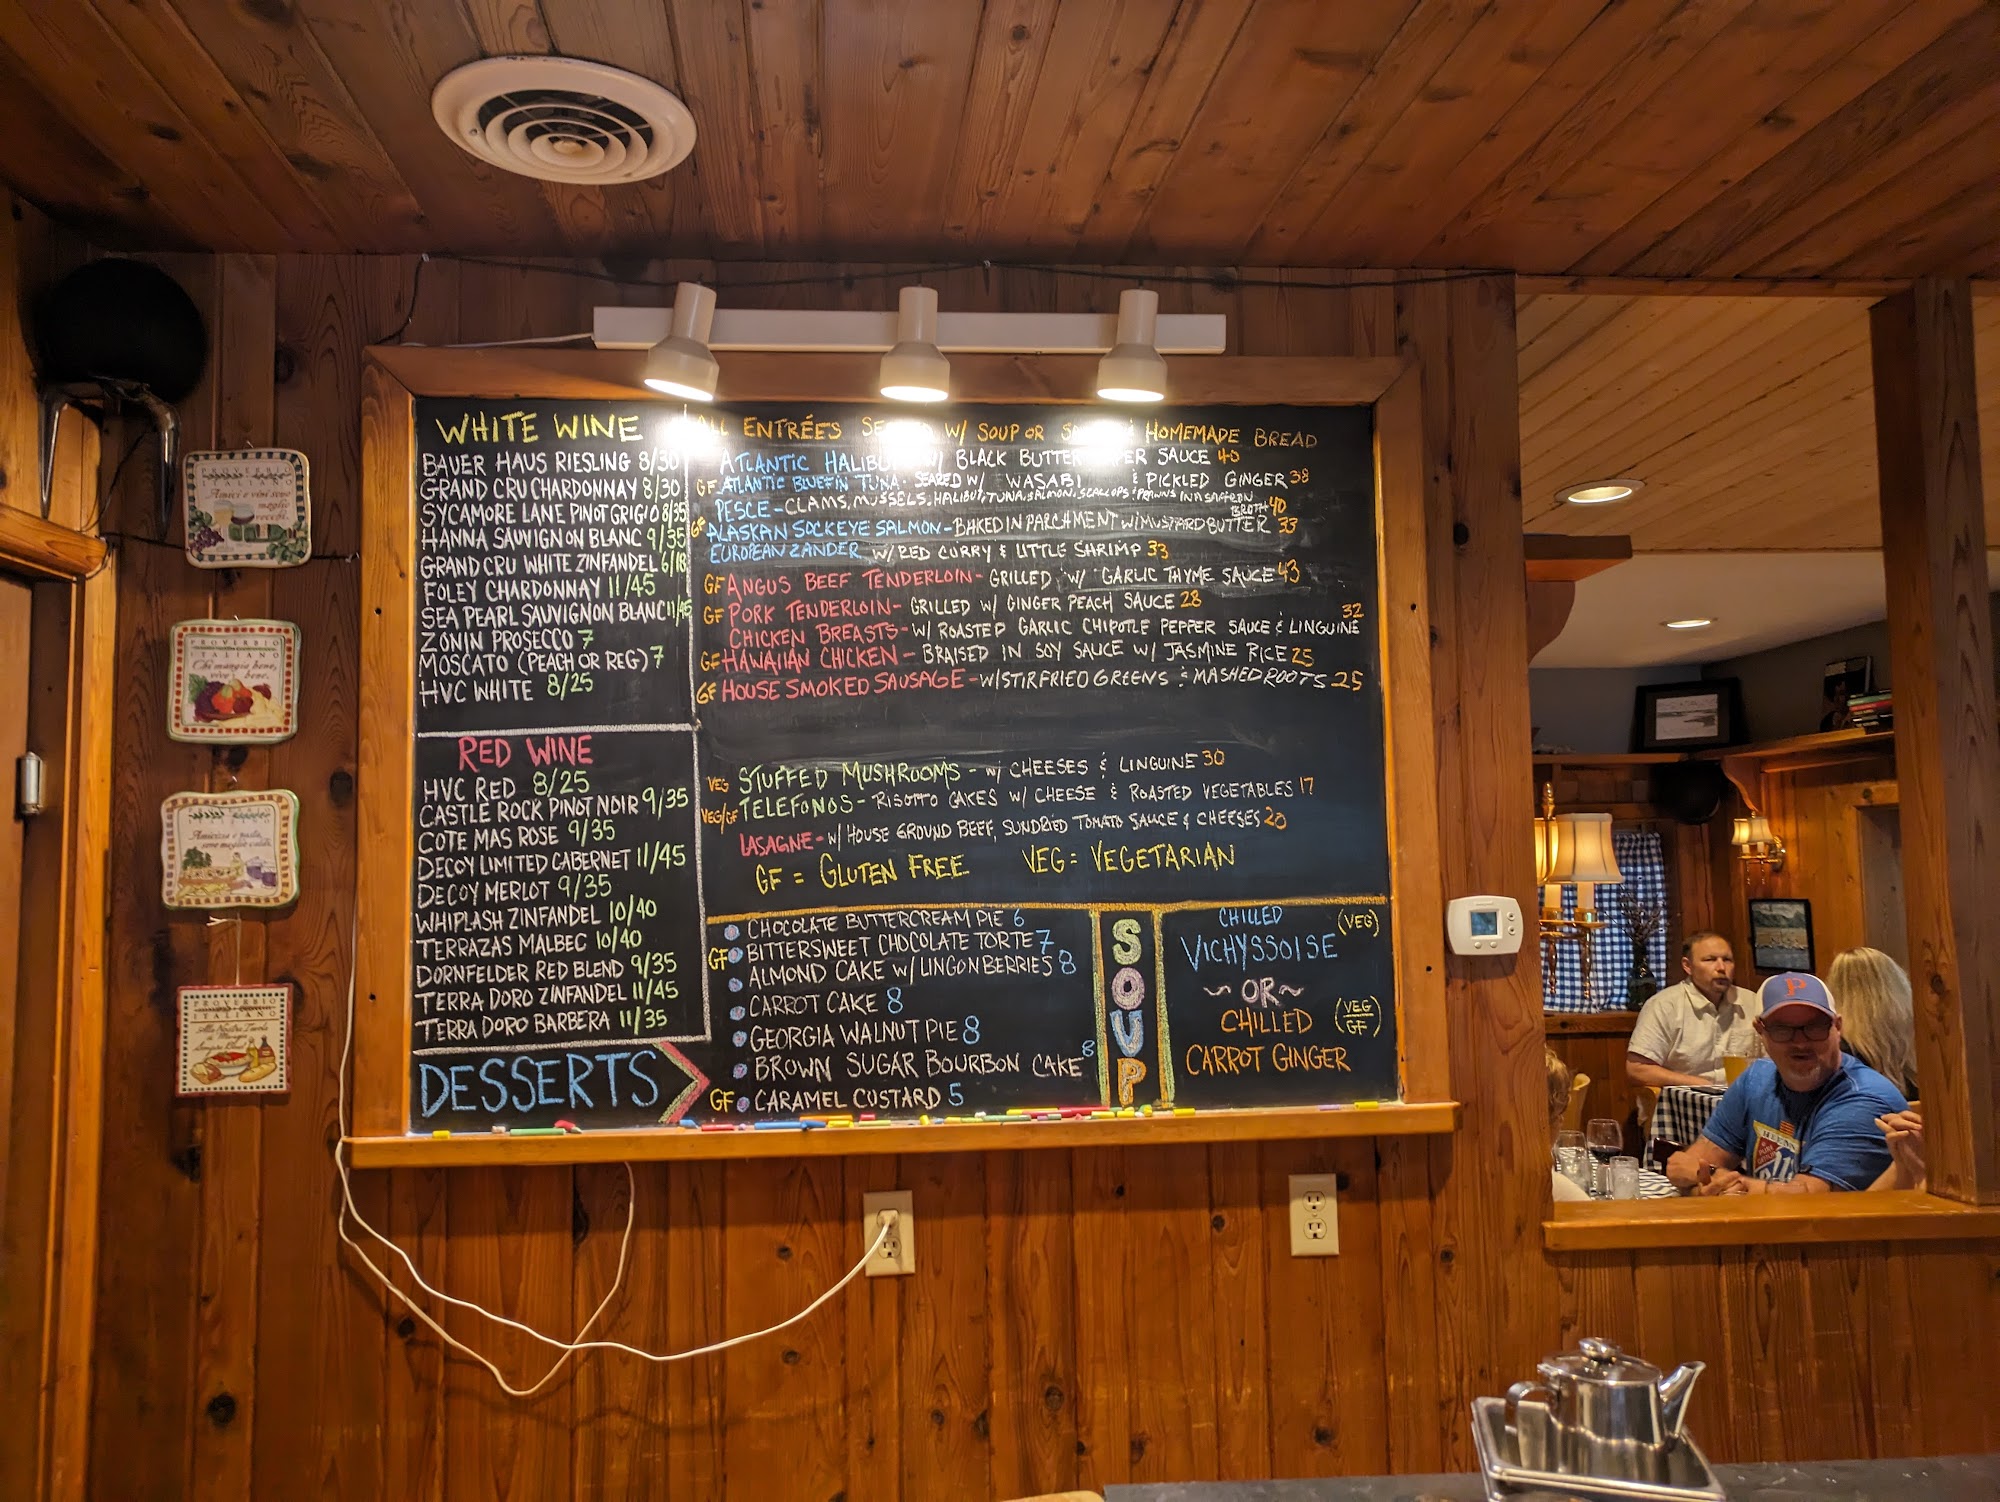 WHITE WINE
BAUER HAUS RIESLING 8/30
GRAND CRU CHARDONNAY 8/30
SYCAMORE LANE PINOT GRIGIO 8/35
HANNA SAUVIGNON BLANC 9/35
GRAND CRU WHITE ZINFANDEL 6/18
FOLEY CHARDONNAY 11/45
SEA PEARL SAUVIGNON BLANC 11/45
ZONIN PROSECCO 7
MOSCATO (PEACH OR REG) 7
HVC WHITE 8/25
RED WINE
HVC RED 8/25
CASTLE ROCK PINOT NOIR 9/35
COTE MAS ROSE 9/35
DECOY LIMITED CABERNET 11/45
DECOY MERLOT 9/35
WHIPLASH ZINFANDEL 10/40
TERRAZAS MALBEC 10/40
DORNFELDER RED BLEND 9/35
TERRA DORO ZINFANDEL 11/45
TERRA DORO BARBERA 11/35
ALL ENTRÉES W/ SOUP OR HOMEMADE BREAD
ATLANTIC BLACK BUTTER SAUCE 40
GF ATLANTIC BLUEFIN TUNA - SEARED W/ WASABI & PICKLED GINGER 38
PESCE - CLAMS, MUSSELS, HALIBUT, TUNA, SALMON, SCALLOPS & PRAWNS IN A SAFFRON
BROTH 40
GF ALASKAN SOCKEYE SALMON - BAKED IN PARCHMENT W/ MUSTARD BUTTER 33
EUROPEAN ZANDER W/ RED CURRY & LITTLE SHRIMP 33
GF ANGUS BEEF TENDERLOIN - GRILLED W/ GARLIC THYME SAUCE 43
GF PORK TENDERLOIN - GRILLED W/ GINGER PEACH SAUCE 28
CHICKEN BREASTS - W/ ROASTED GARLIC CHIPOTLE PEPPER SAUCE & LINGUINE 32
GF HAWAIIAN CHICKEN - BRAISED IN SOY SAUCE W/ JASMINE RICE 25
GF HOUSE SMOKED SAUSAGE - W/ STIRFRIED GREENS & MASHED ROOTS 25
VEG STUFFED MUSHROOMS - W/ CHEESES & LINGUINE 30
VEG/GF TELEFONOS - RISOTTO CAKES W/ CHEESE & ROASTED VEGETABLES 17
LASAGNE - W/ HOUSE GROUND BEEF, SUNDRIED TOMATO SAUCE & CHEESES 20
GF = GLUTEN FREE VEG = VEGETARIAN
DESSERTS
CHOCOLATE BUTTERCREAM PIE 6
GF BITTERSWEET CHOCOLATE TORTE 7
ALMOND CAKE W/ LINGONBERRIES 8
CARROT CAKE 8
GEORGIA WALNUT PIE 8
BROWN SUGAR BOURBON CAKE 8
GF CARAMEL CUSTARD 5
SOUP
CHILLED (VEG)
VICHYSSOISE
~OR~
CHILLED (VEG/GF)
CARROT GINGER
PROVERBIO
ITALIANO
Amici e vini sono
meglio
vecchi.
PROVERBIO
ITALIANO
Chi mangia bene,
vive bene.
PROVERBIO
ITALIANO
P